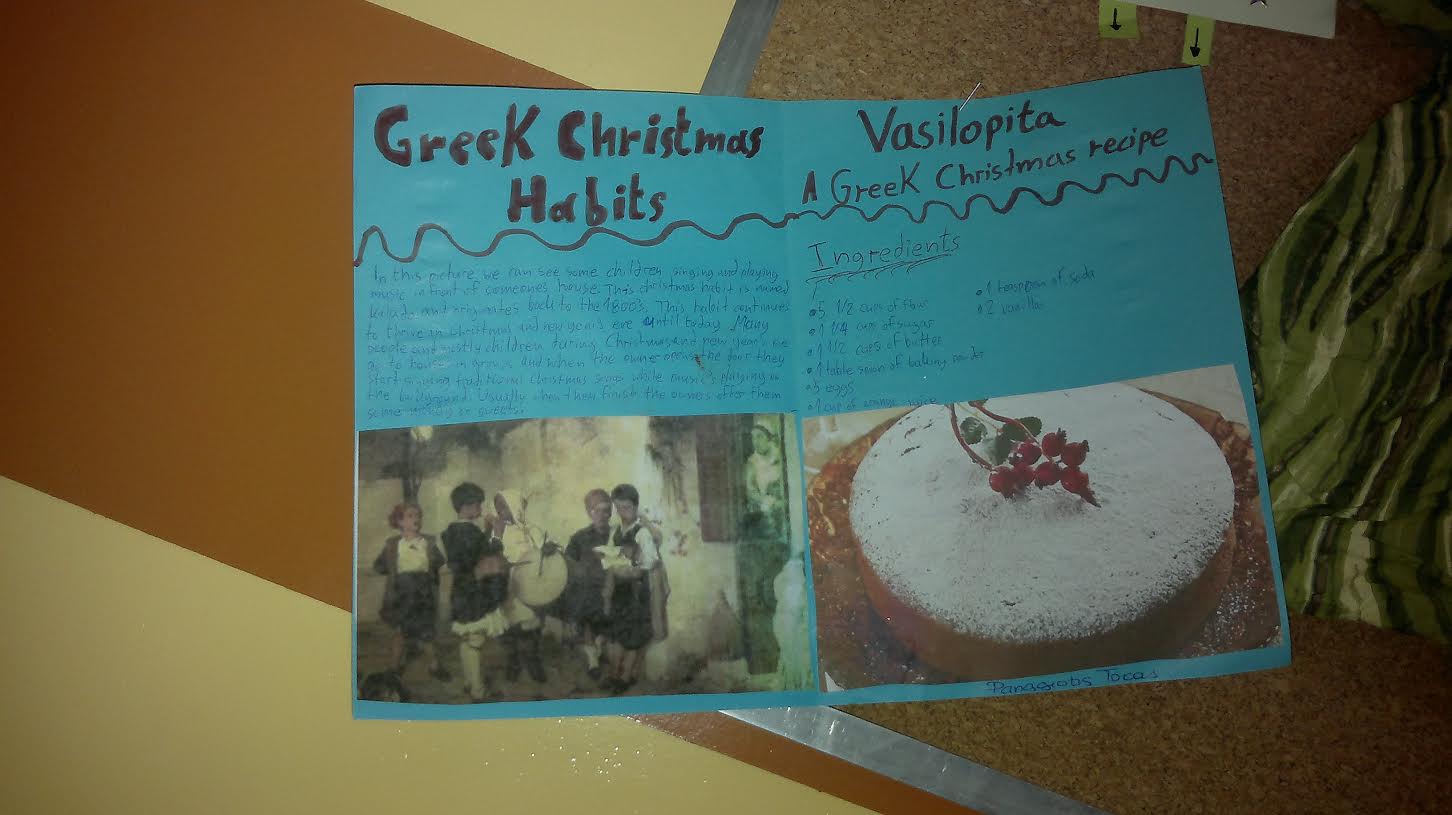 Greek Christmas
Habits
In this picture we can see some children singing and playing
music in front of someones house. This christmas habit is named
kalada and originates back to the 1800's. This habit continues
to thrive in Christmas and new years eve until today. Many
people and mostly children during Christmas and new year's eve
go to houses in groups and when the owner opens the door they
start singing traditional Christmas songs while music's playing in
the background. Usually when they finish the owners offer them
some money or sweets.
Vasilopita
A Greek Christmas recipe
Ingredients
5 1/2 cups of flour
1 1/4 cups of sugar
1 1/2 cups of butter
1 table spoon of baking powder
5 eggs
1 cup of orange juice
1 teaspoon of soda
2 vanillas
Panagiotis Tocas